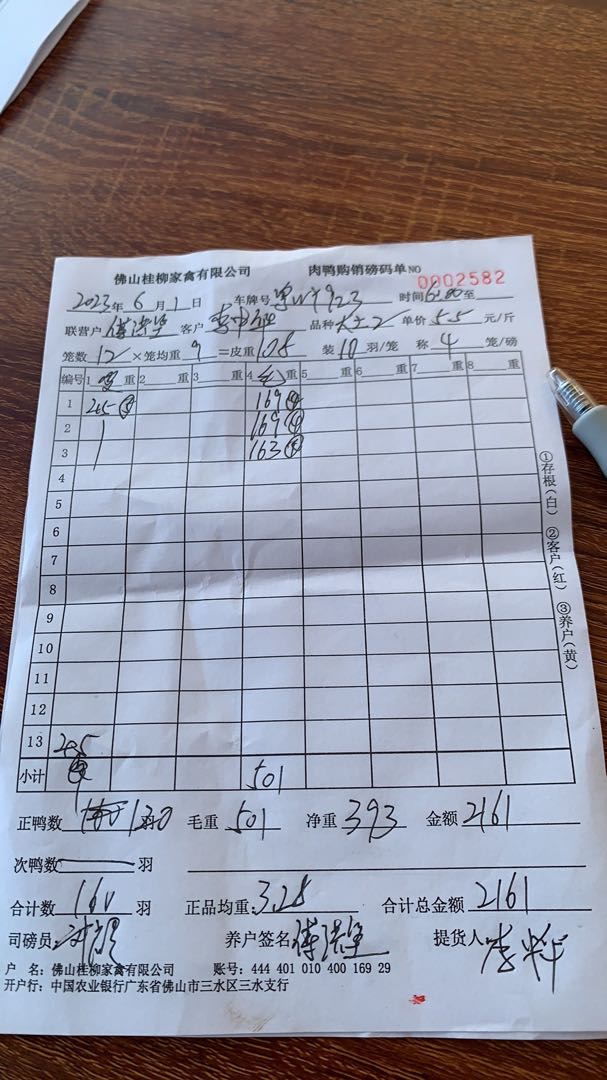 佛山桂柳家禽有限公司 肉鸭购销磅码单 NO 0002582
2023年 6月 1日 车牌号 923 时间 至
联营户 客户 品种 单价 5.5 元/斤
笼数 12 × 笼均重 9 =皮重 108 装 10 羽/笼 称 4 笼/磅
编号 1 重 2 重 3 重 4 毛 重 5 重 6 重 7 重 8 重
1 245 169 ④
2 169 ④
3 163 ④
4
5
6
7
8
9
10
11
12
13 245
小计 501
正鸭数 120 羽 毛重 501 净重 393 金额 2161
次鸭数 羽
合计数 羽 正品均重: 3.28 合计总金额 2161
司磅员: 养户签名 提货人
户 名: 佛山桂柳家禽有限公司 账号: 444 401 010 400 169 29
开户行: 中国农业银行广东省佛山市三水区三水支行
①存根(白) ②客户(红) ③养户(黄)